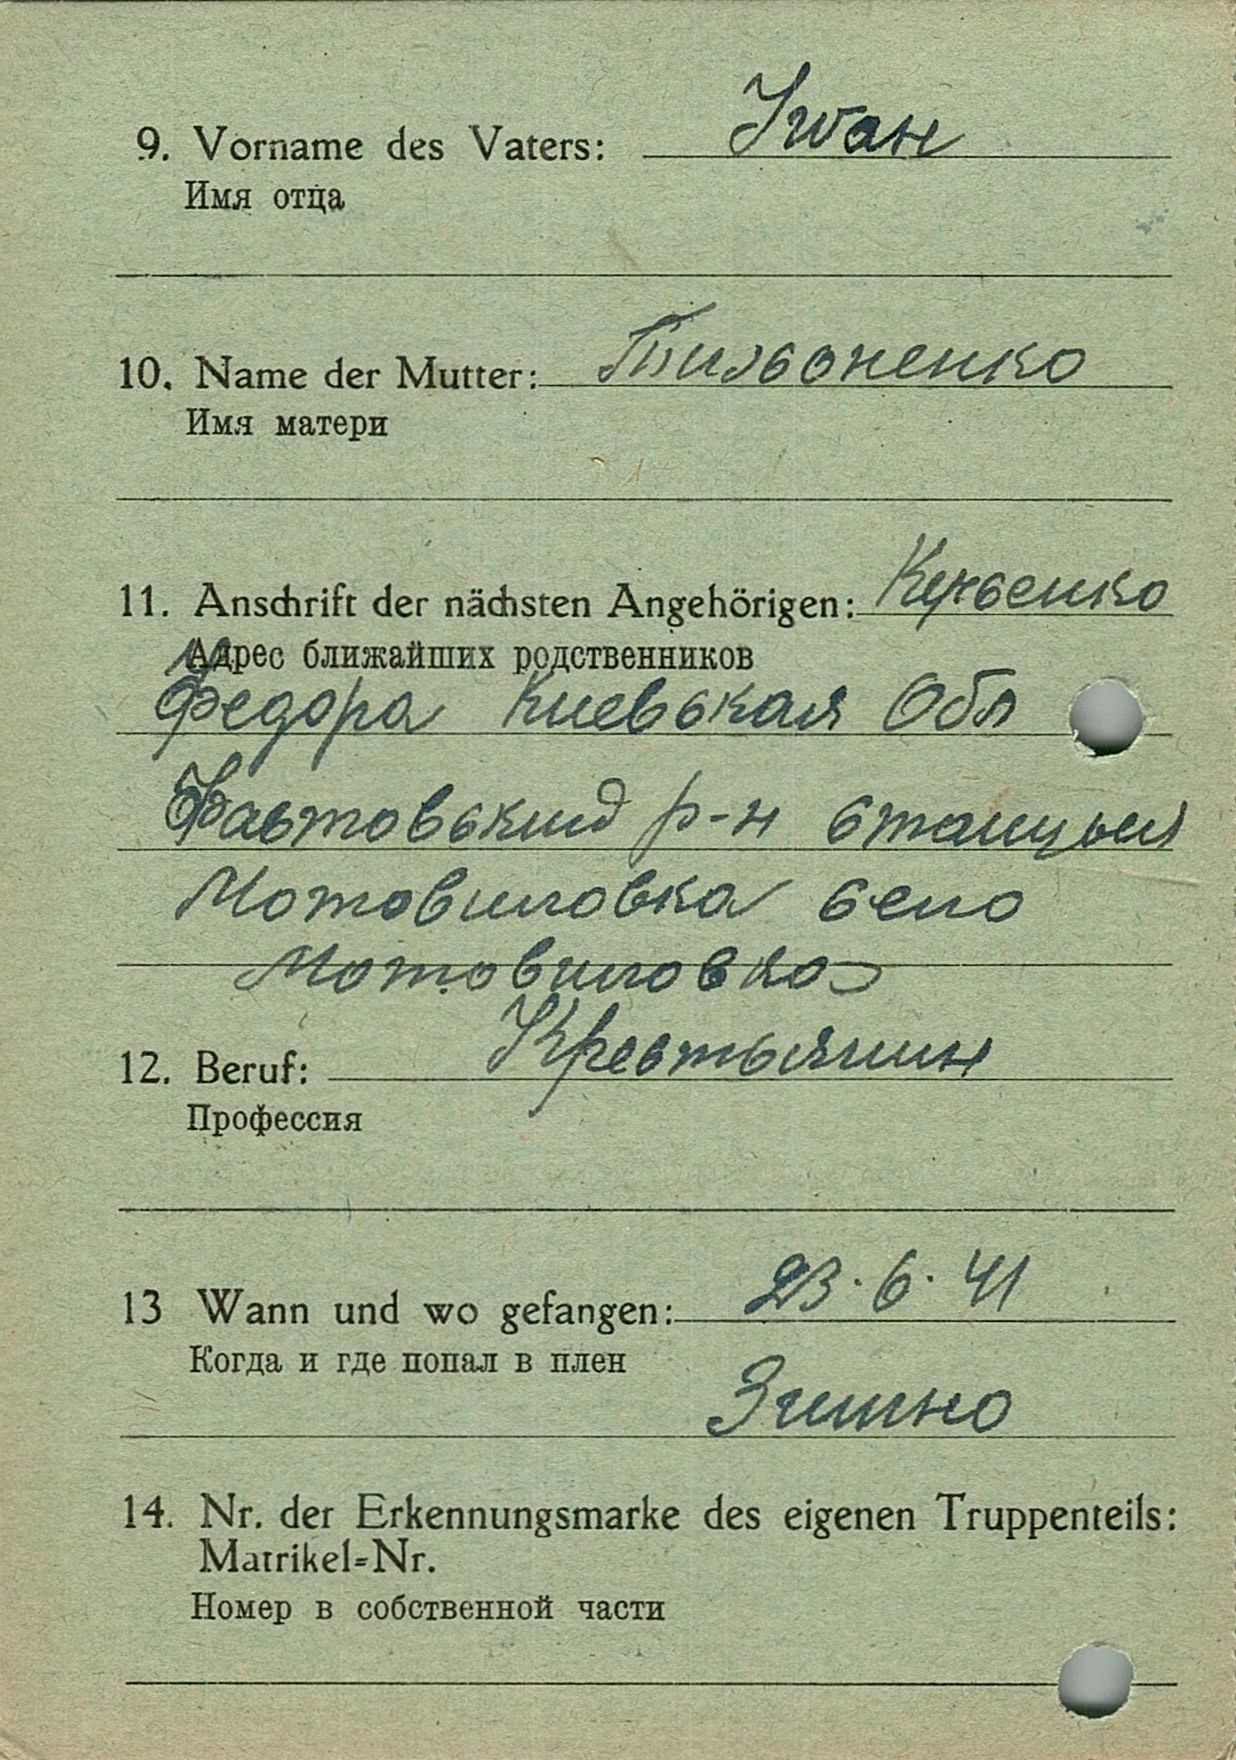 9. Vorname des Vaters: Иван
Имя отца
10. Name der Mutter: Тихоненко
Имя матери
11. Anschrift der nächsten Angehörigen:
Адрес ближайших родственников
Федора Киевская Обл
Фастовский р-н станцыя
Мотовиловка село
Мотовиловка
12. Beruf: Крестьянин
Профессия
13 Wann und wo gefangen: 23.6.41
Когда и где попал в плен
14. Nr. der Erkennungsmarke des eigenen Truppenteils:
Matrikel=Nr.
Номер в собственной части